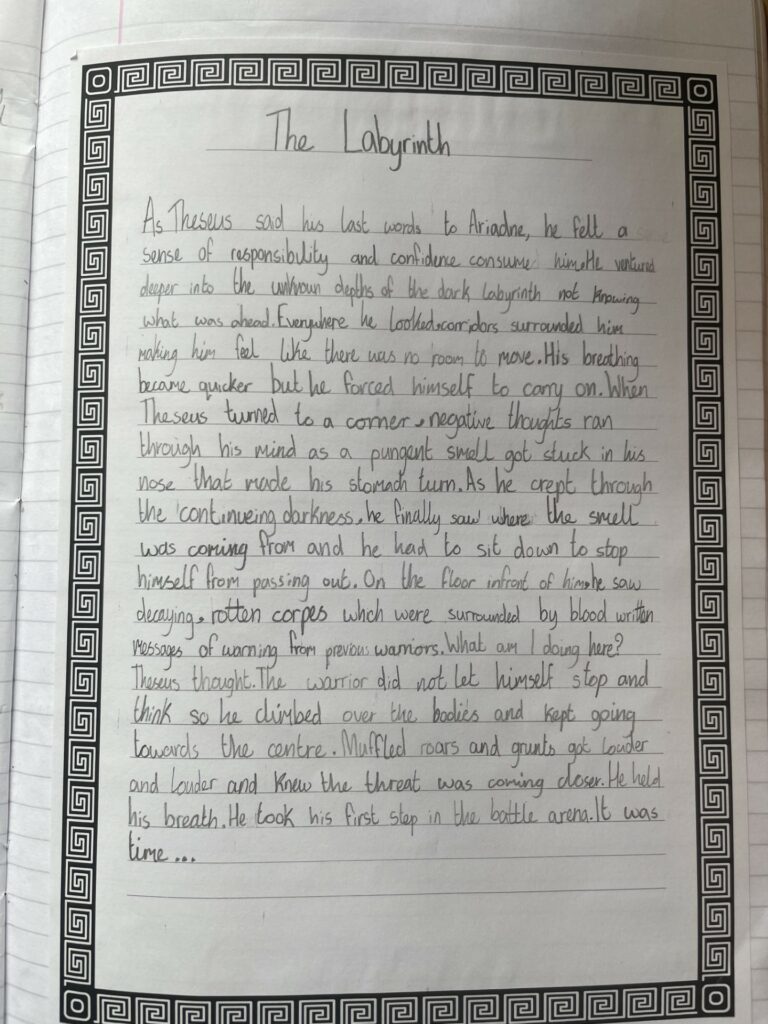 The Labyrinth
As Theseus said his last words to Ariadne, he felt a
sense of responsibility and confidence consume him. He ventured
deeper into the unknown depths of the dark labyrinth not knowing
what was ahead. Everywhere he looked, corridors surrounded him
making him feel like there was no room to move. His breathing
became quicker but he forced himself to carry on. When
Theseus turned to a corner, negative thoughts ran
through his mind as a pungent smell got stuck in his
nose that made his stomach turn. As he crept through
the continueing darkness, he finally saw where the smell
was coming from and he had to sit down to stop
himself from passing out. On the floor infront of him, he saw
decaying, rotten corpes whch were surrounded by blood written
messages of warning from previous warriors. What am I doing here?
Theseus thought. The warrior did not let himself stop and
think so he climbed over the bodies and kept going
towards the centre. Muffled roars and grunts got louder
and louder and knew the threat was coming closer. He held
his breath. He took his first step in the battle arena. It was
time...